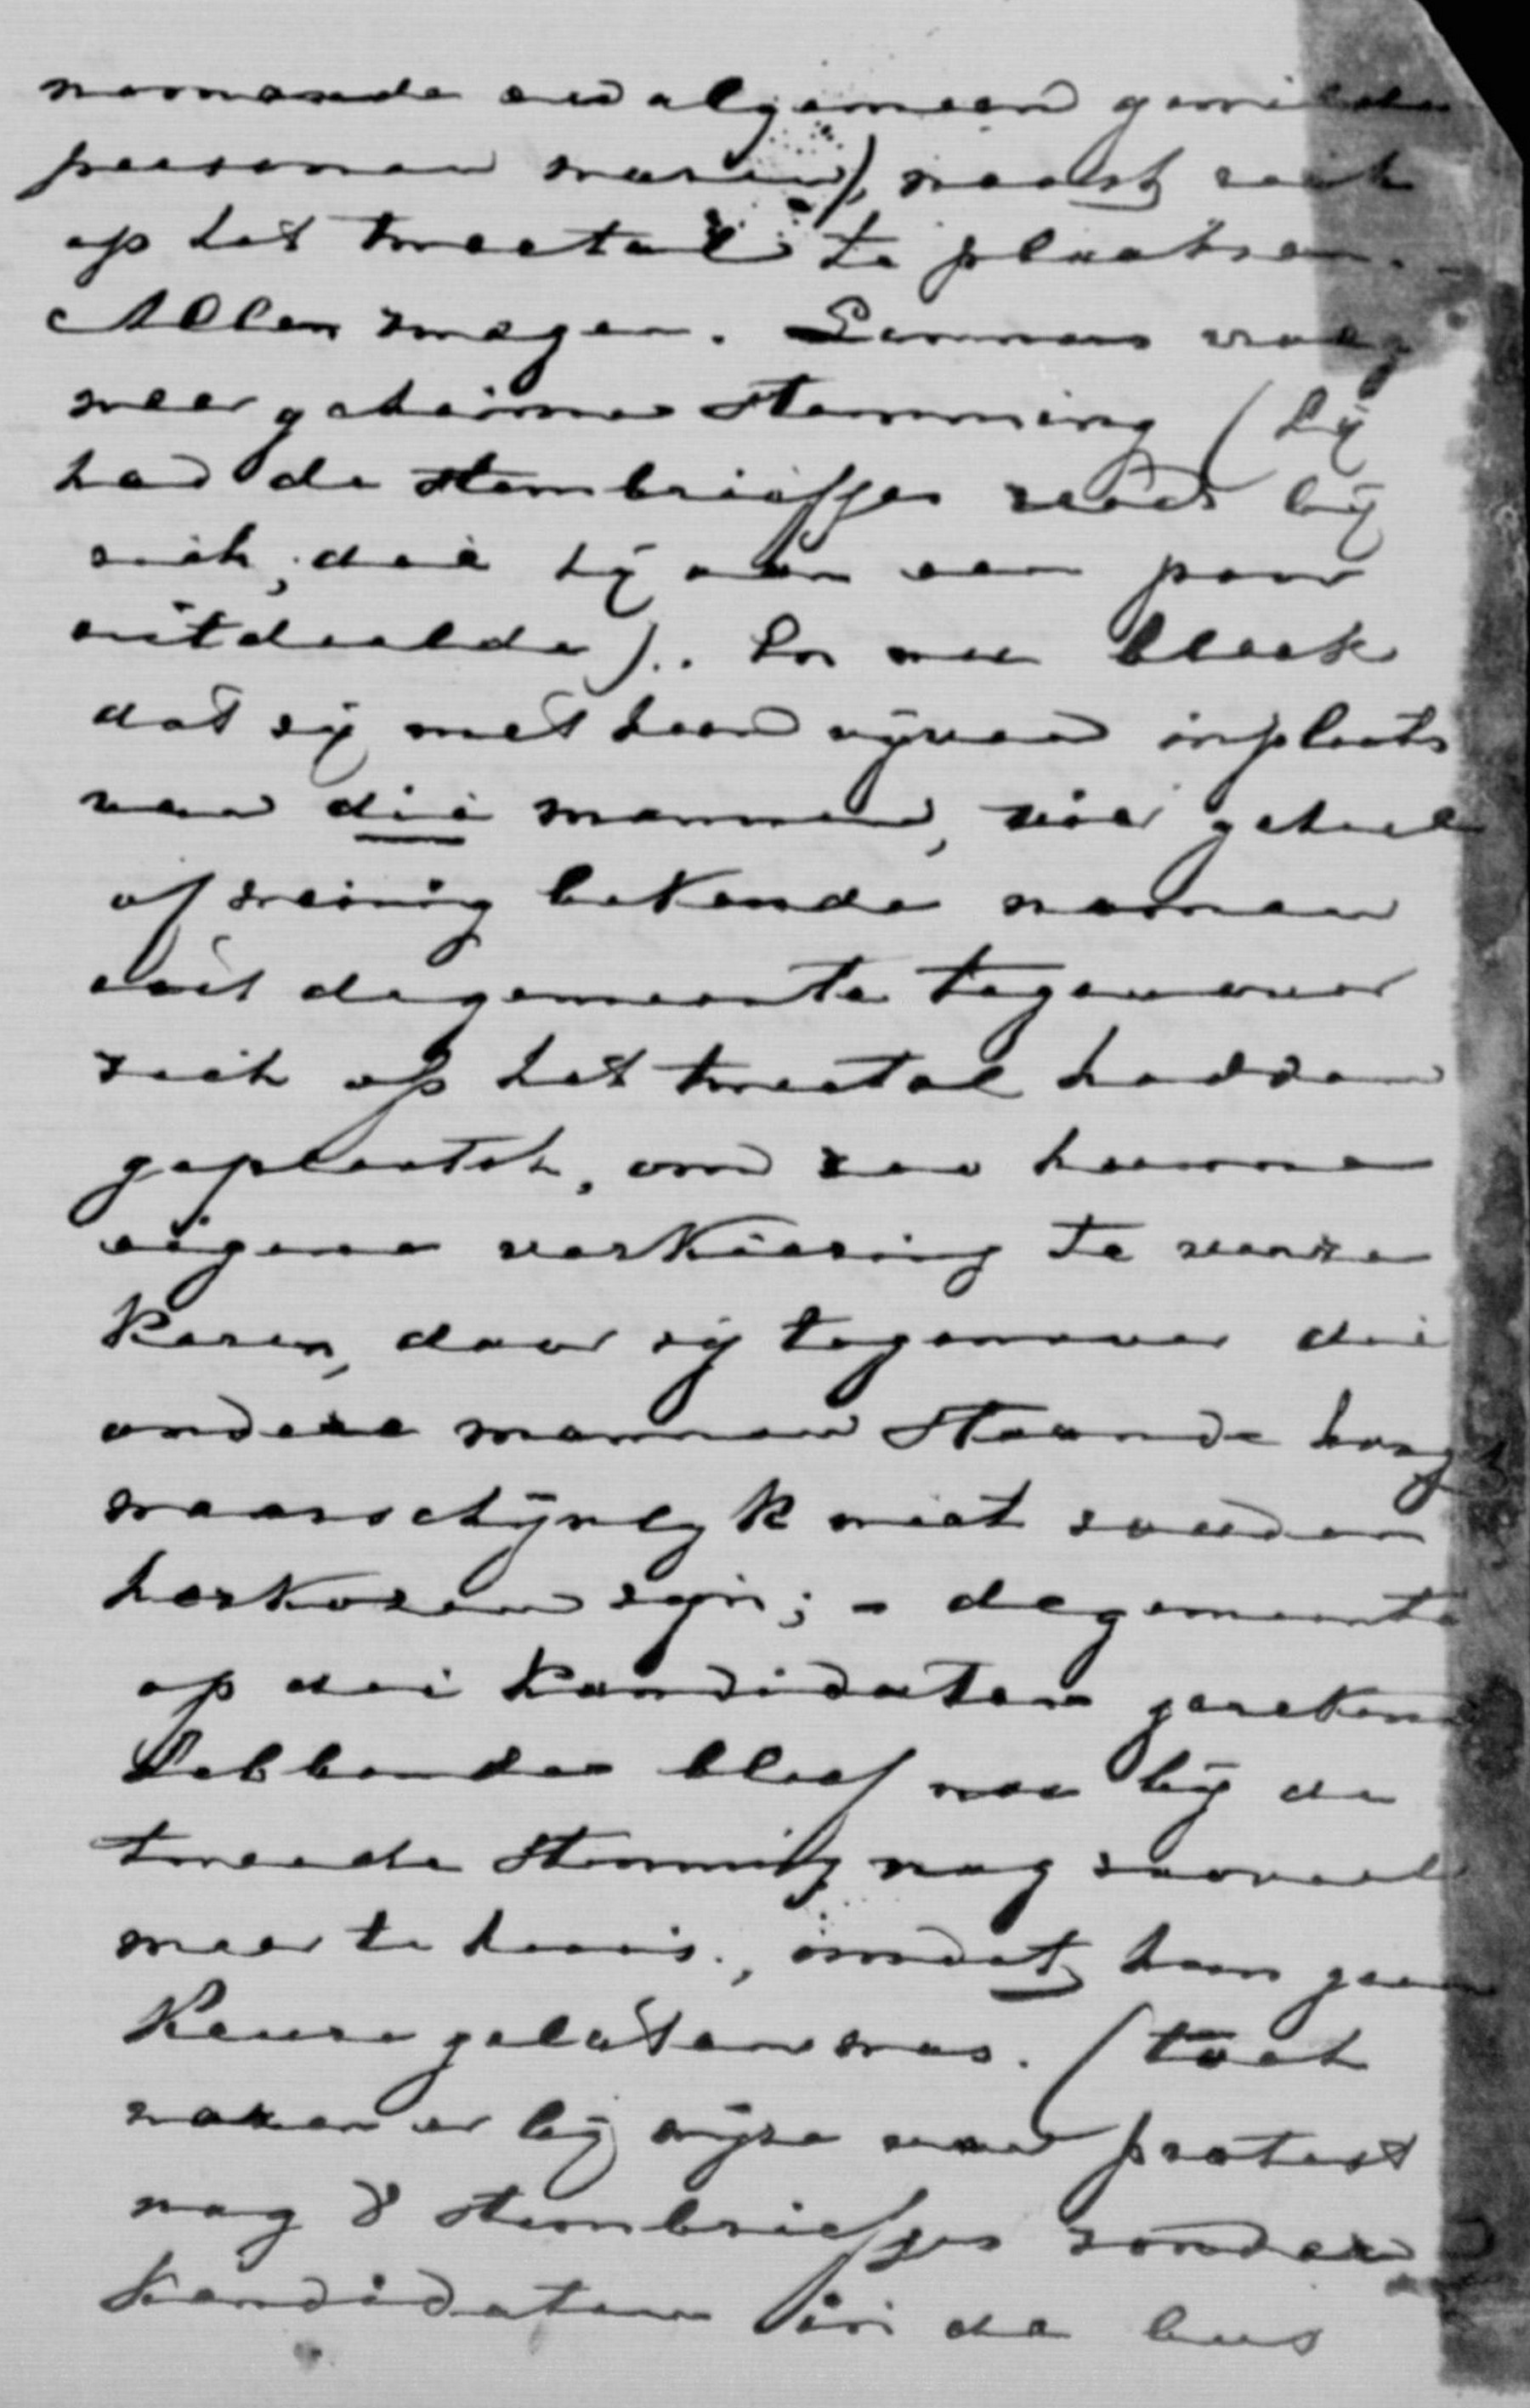 noomende en algemeen gewilde
personen waren), naast zich
op het tweetal te plaatsen.
Allen zwegen. Lammers vroeg
weer geheime stemming (hij
had de stembriefjes reeds bij
zich, die hij aan een paar
uitdeelde).. En nu bleek
dat zij met hun vijven inplaats
van die mannen, vier geheel
of weinig bekende namen
uit de gemeente tegenover
zich op het tweetal hadden
geplaatst, om zoo hunne
eigene verkiezing te verze
keren, daar zij tegenover die
andere mannen staande hoogst
waarschijnlijk niet zouden
herkozen zijn; - de gemeente
op die kandidaten gerekend
hebbende bleef nu bij de
tweede stemming nog zooveel
meer te huis, omdat hun geen
keuze gelaten was. (toch
waren er bij wijze van protest
nog 8 stembriefjes zonder
kandidaten in de bus